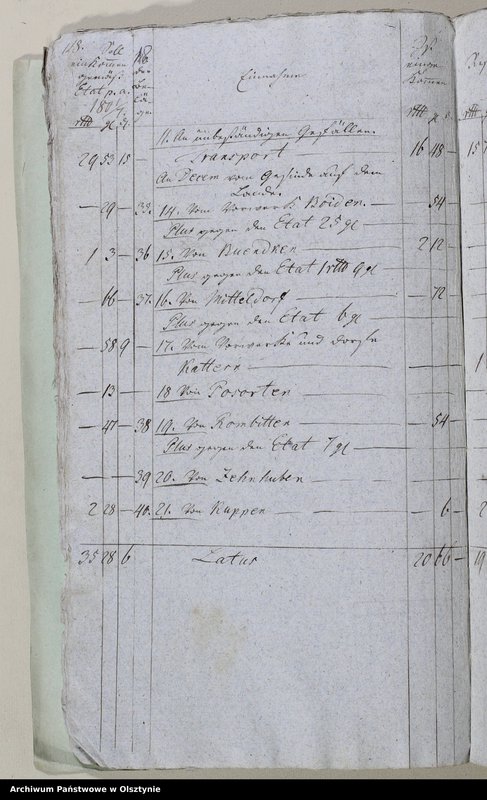 Soll
einkom̄en
gemäß
Etat p. a.
rtl gl ₰.
Einnahme
Ist
einge
kom̄en
rtl gl ₰
11. An unbeständigen Gefällen.
29 53 15 Transport 16 48 —
An Decem vom Gesinde auf dem
Lande.
— 29 — 33. 14. Vom Vorwerk Boiden. — 54 —
Plus gegen den Etat 25 gl
1 3 — 36 15. Von Buendken 2 12 —
Plus gegen den Etat 1 rtl 9 gl
— 66 — 37. 16. Von Mitteldorf — 72 —
Plus gegen den Etat 6 gl
— 58 9 — 17. Vom Vorwerke und Dorfe
Kattern
— 13 — 18 Von Posorten
— 47 — 38 19. Von Rombitten — 54 —
Plus gegen den Etat 7 gl
39 20. Von Zehnhuben
2 28 — 40. 21. Von Kuppen — 6 —
35 28 6 Latus 20 66 —
Archiwum Państwowe w Olsztynie